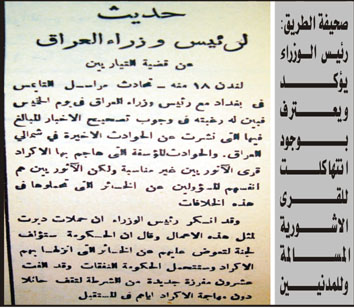 صحيفة الطريق:
رئيس الوزراء
يؤكد
ويعترف
بوجود
انتهاكلت
للقرى
الاشورية
المسالمة
وللمدنيين
حديث
لرئيس وزراء العراق
عن قضية التياريين
لندن ١٨ منه – تحادث مراسل التايمس
في بغداد مع رئيس وزراء العراق في يوم الخميس
فبين له رغبته في وجوب تصحيح الاخبار المبالغ
فيها التي نشرت عن الحوادث الاخيرة في شمالي
العراق. والحوادث المؤسفة التي هاجم بها الاكراد
قرى الآثوريين غير مناسبة ولكن الآثوريين هم
انفسهم المسؤولين عن الخسائر التي تحملوها في
هذه الخلافات
وقد انكر رئيس الوزراء ان حملات دبرت
لمثل هذه الاعمال وقال ان الحكومة ستؤلف
لجنة لتعوض عليهم عن الخسائر التي انزلها بهم
الاكراد وستتحمل الحكومة النفقات وقد الفت
عشرون مفرزة جديدة من الشرطة لتقف حائلا
دون مهاجمة الاكراد ايام في المستقبل